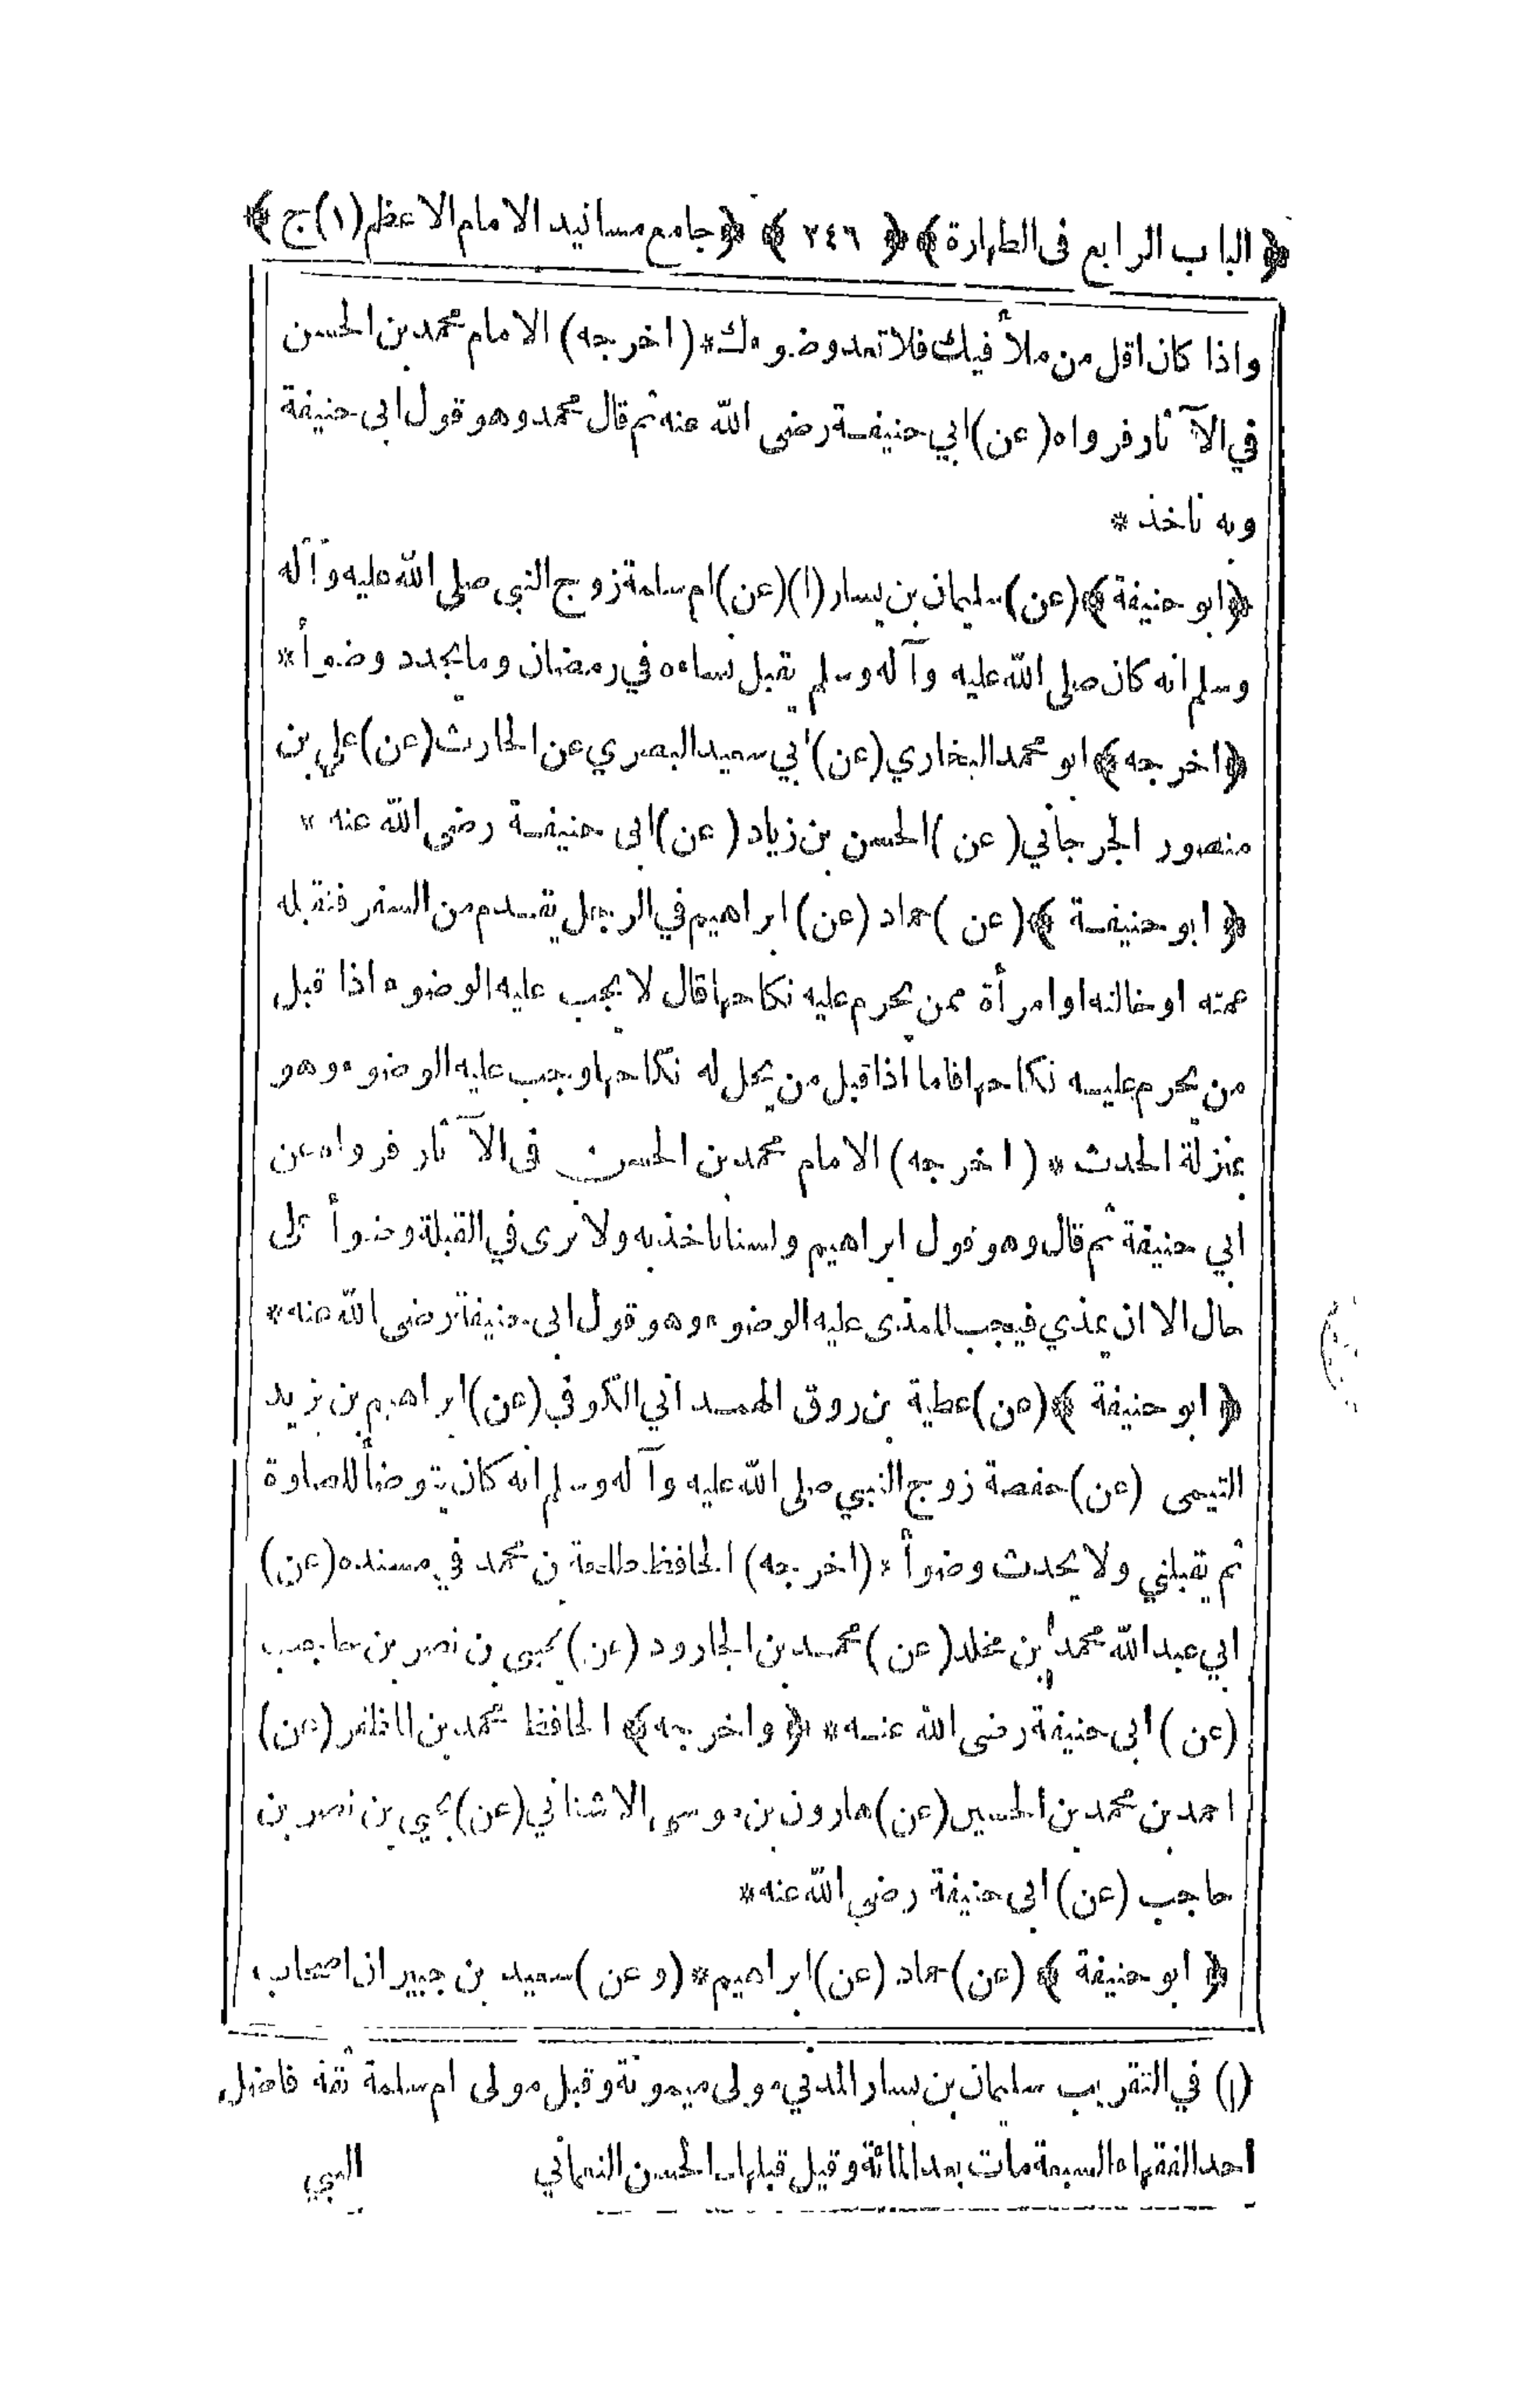 ﴿ الباب الرابع فى الطهارة ﴾ ﴿ ٢٤٦ ﴾ ﴿ جامع مسانيد الامام الاعظم (١) ج ﴾
واذا كان اقل من ملأ فيك فلا تعد وضوءك * ( اخرجه ) الامام محمد بن الحسن
في الآثار فرواه ( عن ) ابي حنيفة رضى الله عنه ثم قال محمد وهو قول ابى حنيفة
وبه ناخذ *
﴿ ابو حنيفة ﴾ ( عن ) سليمان بن يسار (١) ( عن ) ام سلمة زوج النبي صلى الله عليه وآله
وسلم انه كان صلى الله عليه وآله وسلم يقبل نساءه في رمضان وما يجدد وضوأ *
﴿ اخرجه ﴾ ابو محمد البخاري ( عن ) ابي سعيد البصري عن الحارث ( عن ) علي بن
منصور الجرجاني ( عن ) الحسن بن زياد ( عن ) ابى حنيفة رضى الله عنه *
﴿ ابو حنيفة ﴾ ( عن ) حماد ( عن ) ابراهيم في الرجل يقدم من السفر فتقبله
عمته او خالته او امرأة ممن يحرم عليه نكاحها قال لا يجب عليه الوضوء اذا قبل
من يحرم عليه نكاحها فاما اذا قبل من يحل له نكاحها وجب عليه الوضوء وهو
بمنزلة الحدث * ( اخرجه ) الامام محمد بن الحسن فى الآثار فرواه عن
ابي حنيفة ثم قال وهو قول ابراهيم ولسنا ناخذ به ولا نرى في القبلة وضوأ على
حال الا ان يمذي فيجب للمذى عليه الوضوء وهو قول ابى حنيفة رضى الله عنه *
﴿ ابو حنيفة ﴾ ( عن ) عطية بن روق الهمداني الكوفي ( عن ) ابراهيم بن يزيد
التيمى ( عن ) حفصة زوج النبي صلى الله عليه وآله وسلم انه كان يتوضأ للصلوة
ثم يقبلني ولا يحدث وضوأ * ( اخرجه ) الحافظ طلحة بن محمد في مسنده ( عن )
ابي عبد الله محمد بن مخلد ( عن ) محمد بن الجارود ( عن ) يحيى بن نصر بن حاجب
( عن ) ابى حنيفة رضى الله عنه * ﴿ واخرجه ﴾ الحافظ محمد بن المظفر ( عن )
احمد بن محمد بن الحسين ( عن ) هارون بن موسى الاشناني ( عن ) يحيي بن نصر بن
حاجب ( عن ) ابى حنيفة رضي الله عنه *
﴿ ابو حنيفة ﴾ ( عن ) حماد ( عن ) ابراهيم * ( و عن ) سعيد بن جبير ان اصحاب
(١) في التقريب سليمان بن يسار المدني مولى ميمونة وقيل مولى ام سلمة ثقة فاضل
احد الفقهاء السبعة مات بعد المائة وقيل قبلها الحسن النعماني
النبي